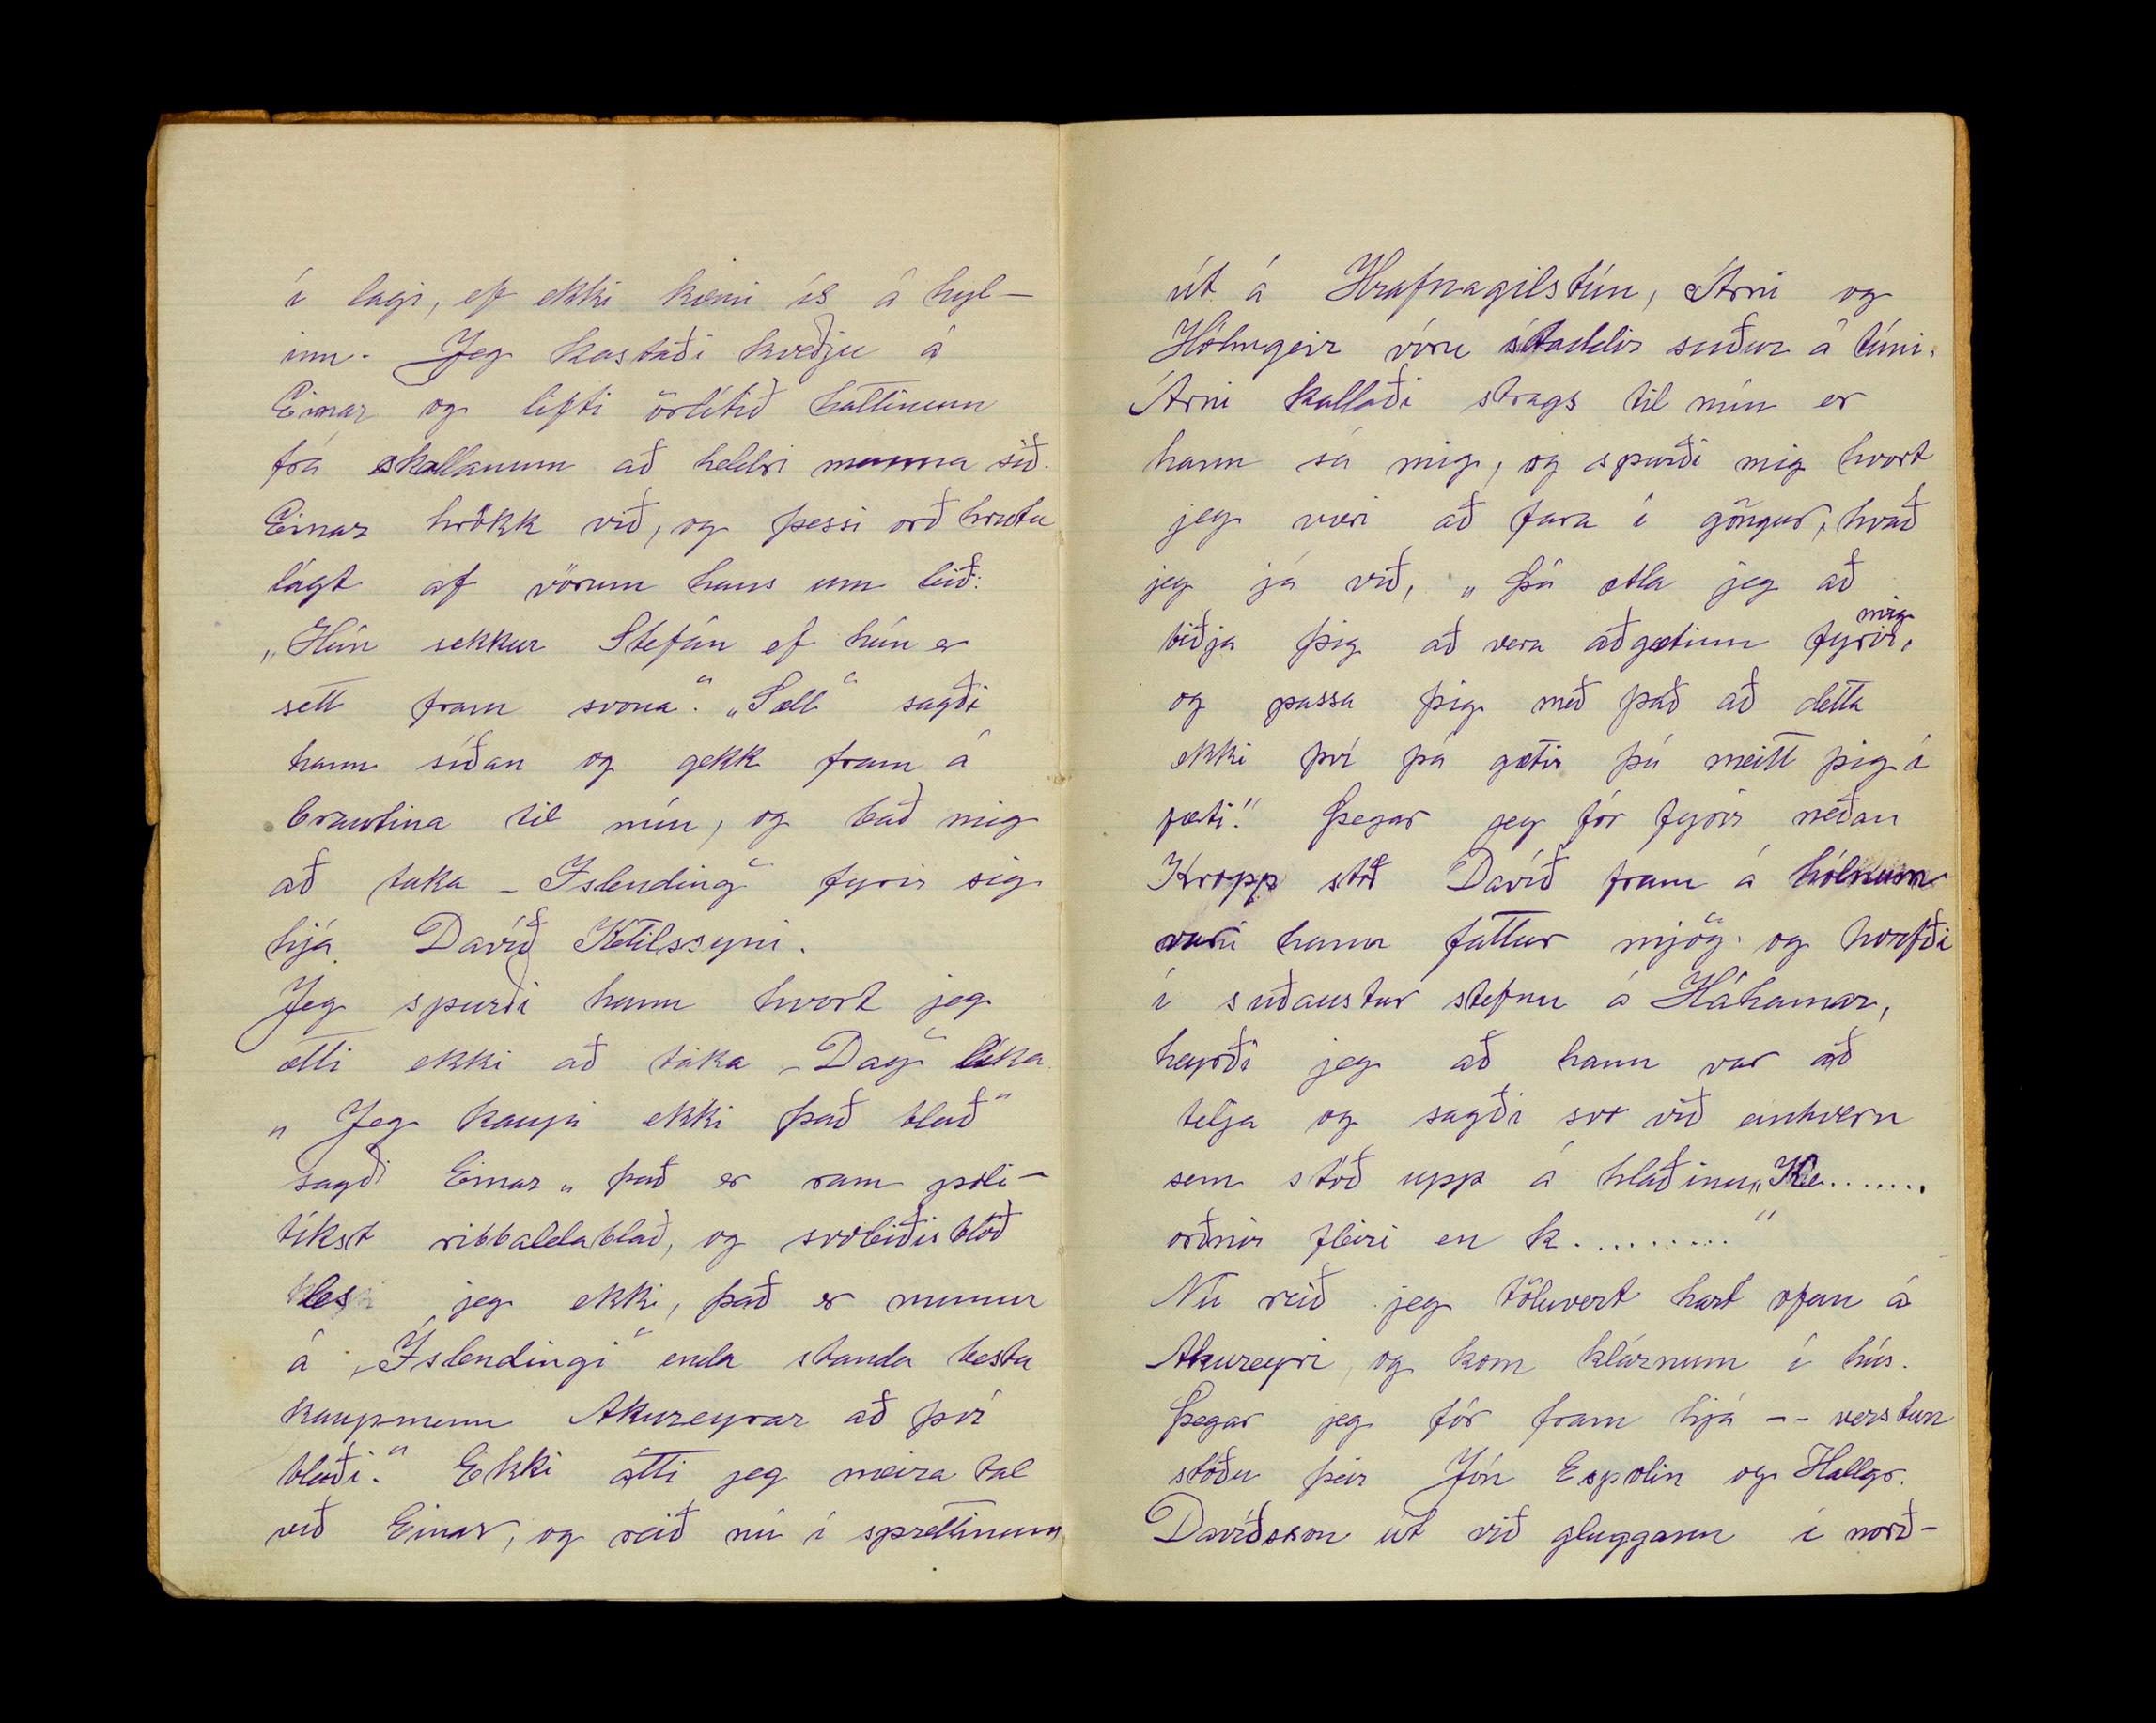 í lagi, ef ekki kæmi ís á hyl-
inn. Jeg kastaði kveðju á
Einar og lifti örlítið hattinum
frá skallanum að heldri manna sið.
Einar hrökk við, og þessi orð hrutu
lágt af vörum hans um leið:
„Hún sekkur Stefán ef hún er
sett fram svona." „Sæll" sagði
hann síðan og gekk fram á
brautina til mín, og bað mig
að taka „Islending" fyrir sig
hjá Davíð Ketilssyni.
Jeg spurði hann hvort jeg
ætti ekki að taka „Dag" líka
„Jeg kaupi ekki það blað"
sagði Einar „það er ram póli-
tíkst ribbaldablað, og svoleiðis blöð
les jeg ekki, það er munur
á „Íslendingi" enda standa bestu
kaupmenn Akureyrar að því
blaði." Ekki átti jeg meira tal
við Einar, og reið nú í sprettinum
út á Hrafnagilstún, Árni og
Hólmgeir vóru staddir suður á túni.
Árni kallaði strags til mín er
hann sá mig, og spurði mig hvort
jeg væri að fara í göngur, kvað
jeg já við, „Þá ætla jeg að
biðja þig að vera aðgætinn fyrir mig,
og passa þig með það að detta
ekki því þá gætir þú meitt þig í
fæti." Þegar jeg fór fyrir neðan
Kropp stóð Davíð fram á hólnum
var hann fattur mjög og horfði
í suðaustur stefnu á Háhamar,
heyrði jeg að hann var að
telja og sagði svo við einhvern
sem stóð upp á hlaðinu „Kl........
orðnir fleiri en k.........."
Nú reið jeg töluvert hart ofan á
Akureyri, og kom klárnum í hús.
Þegar jeg fór fram hjá -- verslun
stóðu þeir Jón Espolin og Hallgr.
Davíðsson út við gluggann í norð-